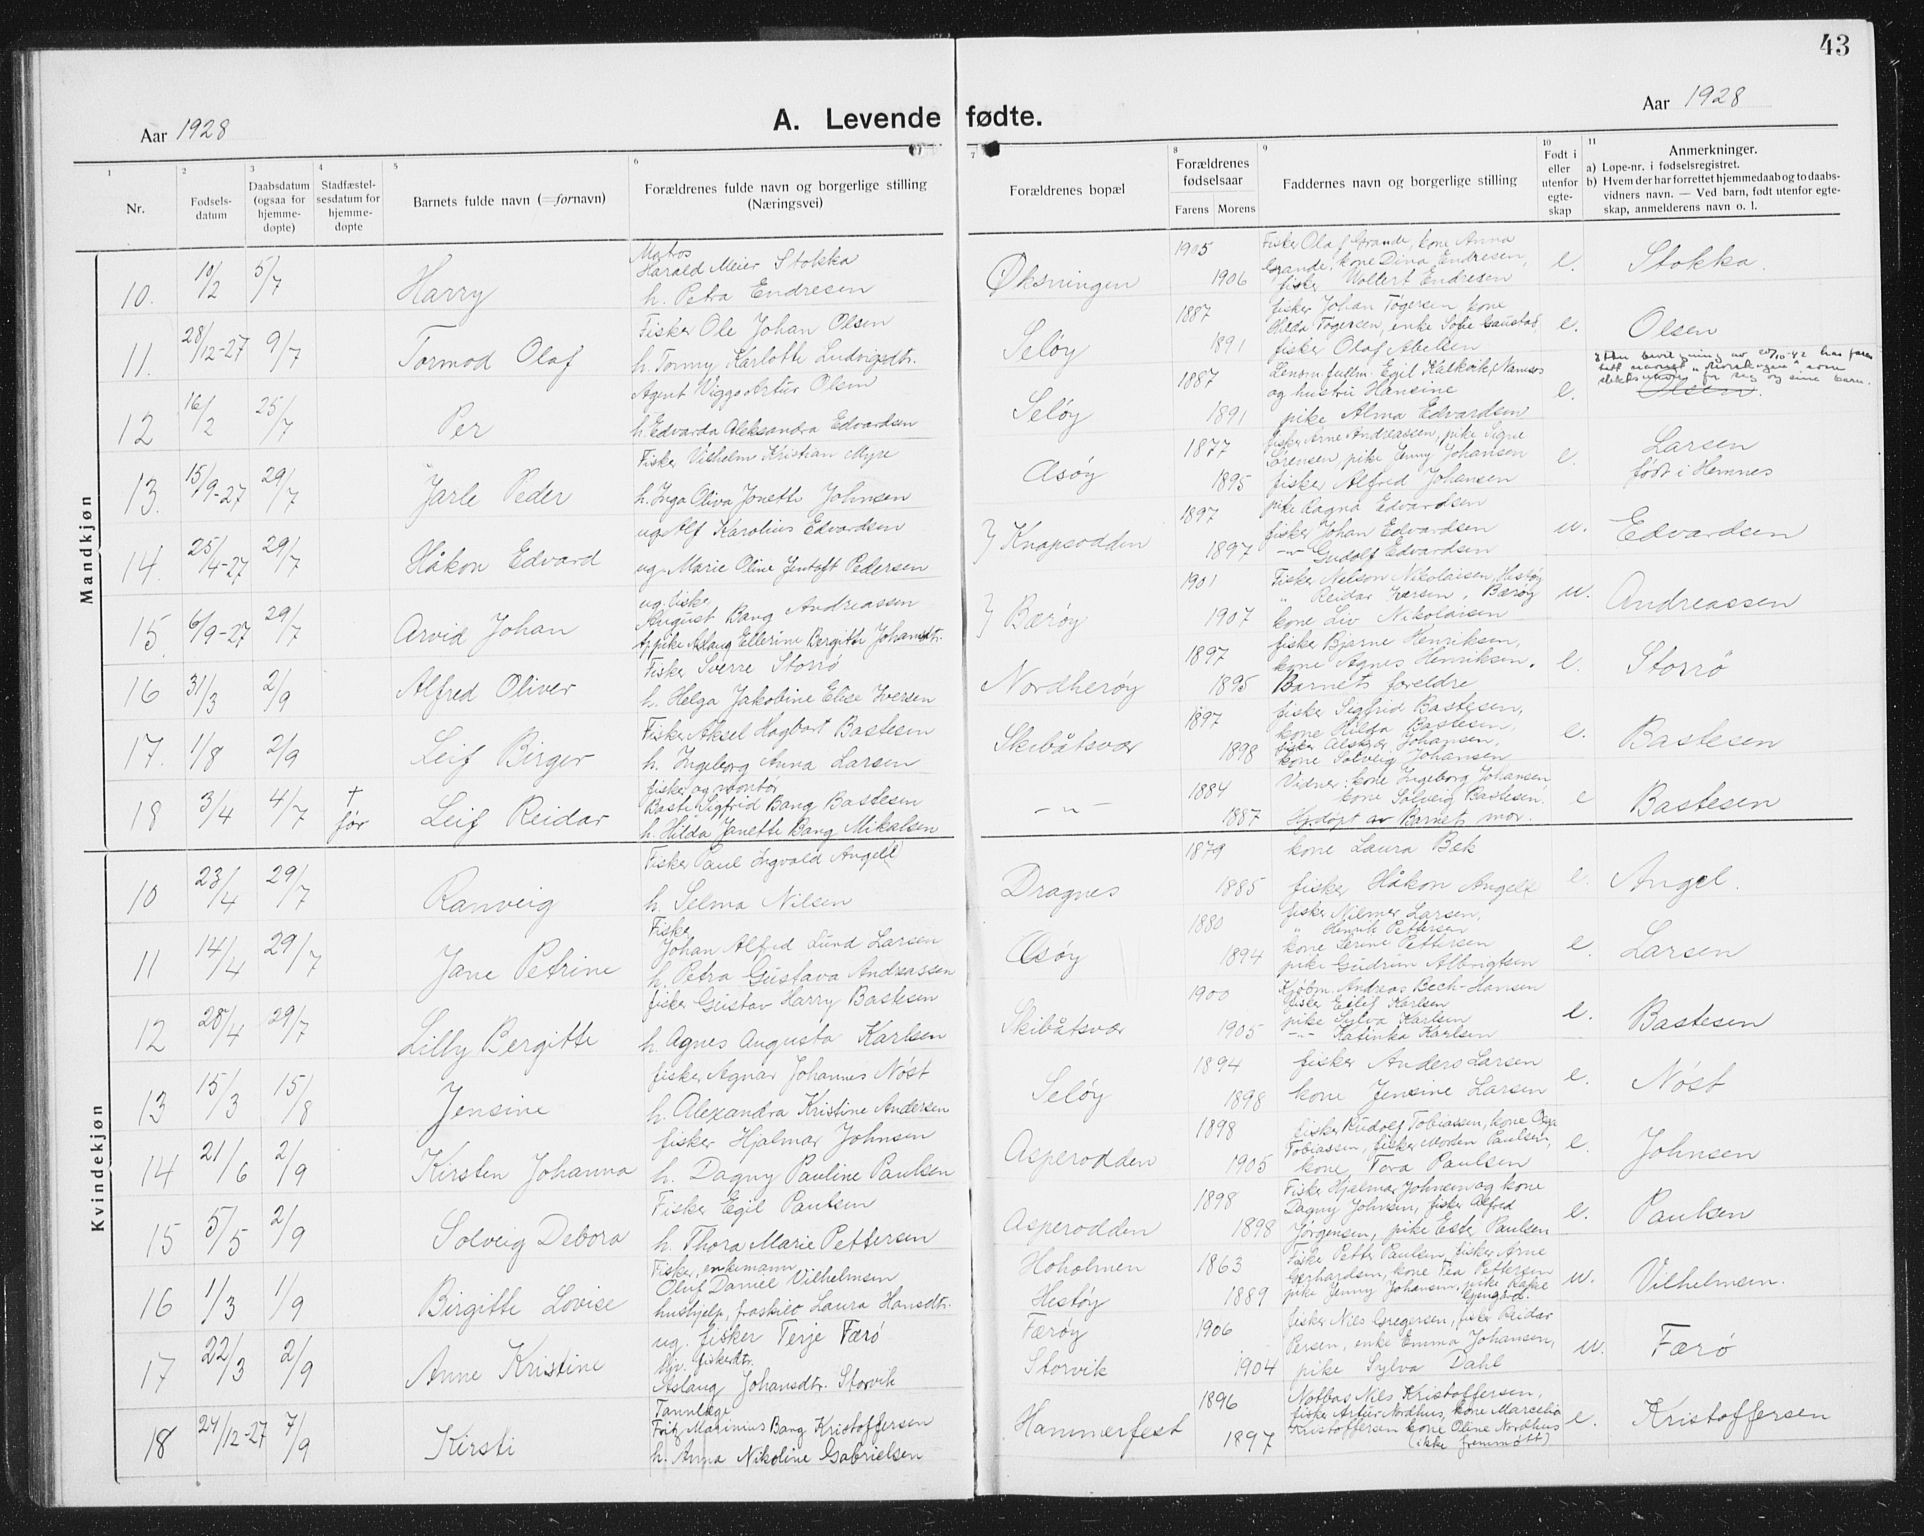 43
Aar 1928
A. Levende fødte.
Aar 1928
1 Nr.
2 Fødselsdatum
3 Daabsdatum (ogsaa for hjemmedøpte)
4 Stadfæstelsesdatum for hjemmedøpte
5 Barnets fulde navn (=fornavn)
6 Forældrenes fulde navn og borgerlige stilling (Næringsvei)
7 Forældrenes bopæl
8 Forældrenes fødselsaar Farens Morens
9 Faddernes navn og borgerlige stilling
10 Født i eller utenfor egteskap
11 Anmerkninger.
a) Løpe-nr. i fødselsregistret.
b) Hvem der har forrettet hjemmedaab og to daabsvidners navn. — Ved barn, født utenfor egteskap, anmelderens navn o. l.
Mandkjøn
10. 10/2 5/7 Harry
Matros
Harald Meier Stokka
h. Petra Endresen
Øksningen 1905 1906
Fisker Olaf Grande, kone Anna
Grande, kone Dina Endresen,
fisker Vollert Endresen
e. Stokka.
11. 28/12-27 9/7 Tormod Olaf
Fisker Ole Johan Olsen
h. Tonny Karlotte Ludvigsdtr.
Seløy 1887 1891
fisker Johan Tøgersen kone
Hilda Tøgersen, enke Sofie Gaustad
fisker Olaf Abelsen
e. Olsen
12 16/2 25/7 Per
Agent Viggo Artur Olsen
h. Edvarda Aleksandra Edvardsen
Seløy 1887 1891
og hustru Hansine
pike Alma Edvardsen
e. Olsen.
13. 15/9-27 29/7 Jarle Peder
Fisker Vilhelm Kristian Myre
h. Inga Oliva Jonette Johnsen
Åsøy 1877 1895
fisker Arne Andreassen, pike Signe
Sørensen, pike Jenny Johansen
fisker Alfred Johansen
e. Larsen
født i Hemnes
14. 25/4-27 29/7 Håkon Edvard
ug. Alf Karolius Edvardsen
ug. Marie Oline Jentoft Pedersen
} Knapsodden 1897 1897
pike Ragna Edvardsen
fisker Johan Edvardsen
-"- Gudolf Edvardsen
u. Edvardsen
15. 6/9-27 29/7 Arvid Johan
ug. fisker
August Bang Andreassen
pike Aslaug Ellerine Bergitte Johansdtr.
} Bærøy 1901 1907
Fisker Nelson Nikolaisen, Hestøy
" Reidar Larsen, Bærøy
kone Liv Nikolaisen
u. Andreassen
16 31/3 2/9 Alfred Oliver
Fisker Sverre Storrø
h. Helga Jakobine Elise Iversen
Nordherøy 1897 1895
fisker Bjarne Henriksen,
kone Agnes Henriksen.
Barnets foreldre
e. Storrø
17. 1/8 2/9 Leif Birger
Fisker Aksel Hagbart Bastesen
h. Ingeborg Anna Larsen
Skibåtsvær 1897 1898
fisker Sigfrid Bastesen,
kone Hilda Bastesen,
fisker Johansen,
kone Solveig Johansen
e. Bastesen
18 3/4 4/7 † før Leif Reidar
fisker og montør
Baste Sigfrid Bang Bastesen
h. Hilda Janette Bang Mikalsen
-"- 1884 1887
Vidner: kone Ingeborg Johansen
kone Solveig Bastesen.
Hjdøpt av Barnets mor.
e Bastesen
Kvindekjøn
10 23/4 29/7 Ranveig
Fisker Paul Ingvald Angell
h. Selma Nilsen
Dragnes 1879 1885
kone Laura Bek
fisker Håkon Angell
e. Angel.
11 14/4 29/7 Jane Petrine
Fisker
Johan Alfred Lund Larsen
h. Petra Gustava Andreassen
Åsøy 1880 1894
fisker Hilmer Larsen,
" Henrik Pettersen
kone Serine Pettersen
pike Gudrun Albrigtsen
e. Larsen
12 28/4 29/7 Lilly Bergitte
fisker Gustav Harry Bastesen
h. Agnes Augusta Karlsen
Skibåtsvær 1900 1905
Kjøbm. Andreas Bech-Hansen
fisker Eilif Karlsen
pike Sylva Karlsen
-"- Katinka Karlsen
e. Bastesen
13 15/3 15/8 Jensine
fisker Agnar Johannes Nøst
h. Alexandra Kristine Andersen
Seløy 1894 1898
fisker Anders Larsen
kone Jensine Larsen
e. Nøst
14 21/6 2/9 Kirsten Johanna
fisker Hjalmar Johnsen
h. Dagny Pauline Paulsen
Asperodden 1898 1905
fisker Rudolf Tobiassen, kone Olga
Tobiassen, fisker Morten Paulsen,
kone Tora Paulsen
e. Johnsen
15 5/5 2/9 Solveig Debora
Fisker Egil Paulsen
h. Thora Marie Pettersen
Asperodden 1898 1898
Fisker Hjalmar Johnsen og kone
Dagny Johnsen, fisker Alfred
Jørgensen, pike Ester Paulsen
e. Paulsen
16 1/3 1/9 Birgitte Lovise
Fisker, enkemann
Oluf Daniel Vilhelmsen
hushjelp, fraskilt Laura Hansdtr.
Hoholmen
Hestøy 1863 1889
Fisker Petter Paulsen, fisker Arne
Gerhardsen, kone Tea Pettersen
pike Jenny Johansen, pike
u. Vilhelmsen.
17 22/3 2/9 Anne Kristine
ug. fisker Terje Færø
ug. fiskerdtr.
Aslaug Johansdtr. Storvik
Færøy
Storvik 1906 1904
fisker Nils Gregersen, fisker Reidar
Persen, enke Emma Johansen,
pike Sylva Dahl
u. Færø
18 24/12-27 7/9 Kirsti
Tannlæge
Fritz Marinius Bang Kristoffersen
h. Anna Nikoline Gabrielsen
Hammerfest 1896 1897
Notbas Nils Kristoffersen,
fisker Artur Nordhus, kone Marcelia
Kristoffersen kone Oline Nordhus
(ikke fremmøtt)
e. Kristoffersen